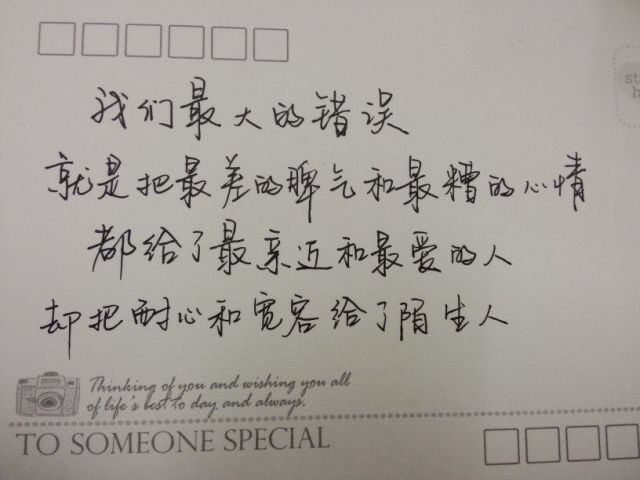 我们最大的错误
就是把最差的脾气和最糟的心情
都给了最亲近和最爱的人
却把耐心和宽容给了陌生人
Thinking of you and wishing you all
of life's best to day and always.
TO SOMEONE SPECIAL